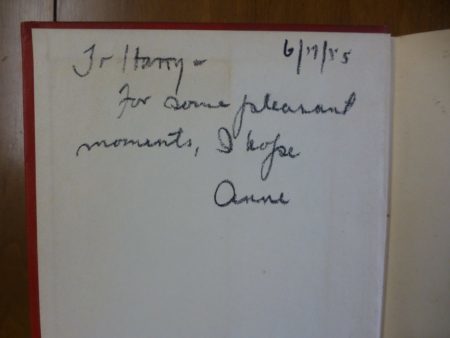 To Harry - 6/17/85
For some pleasant
moments, I hope
Anne